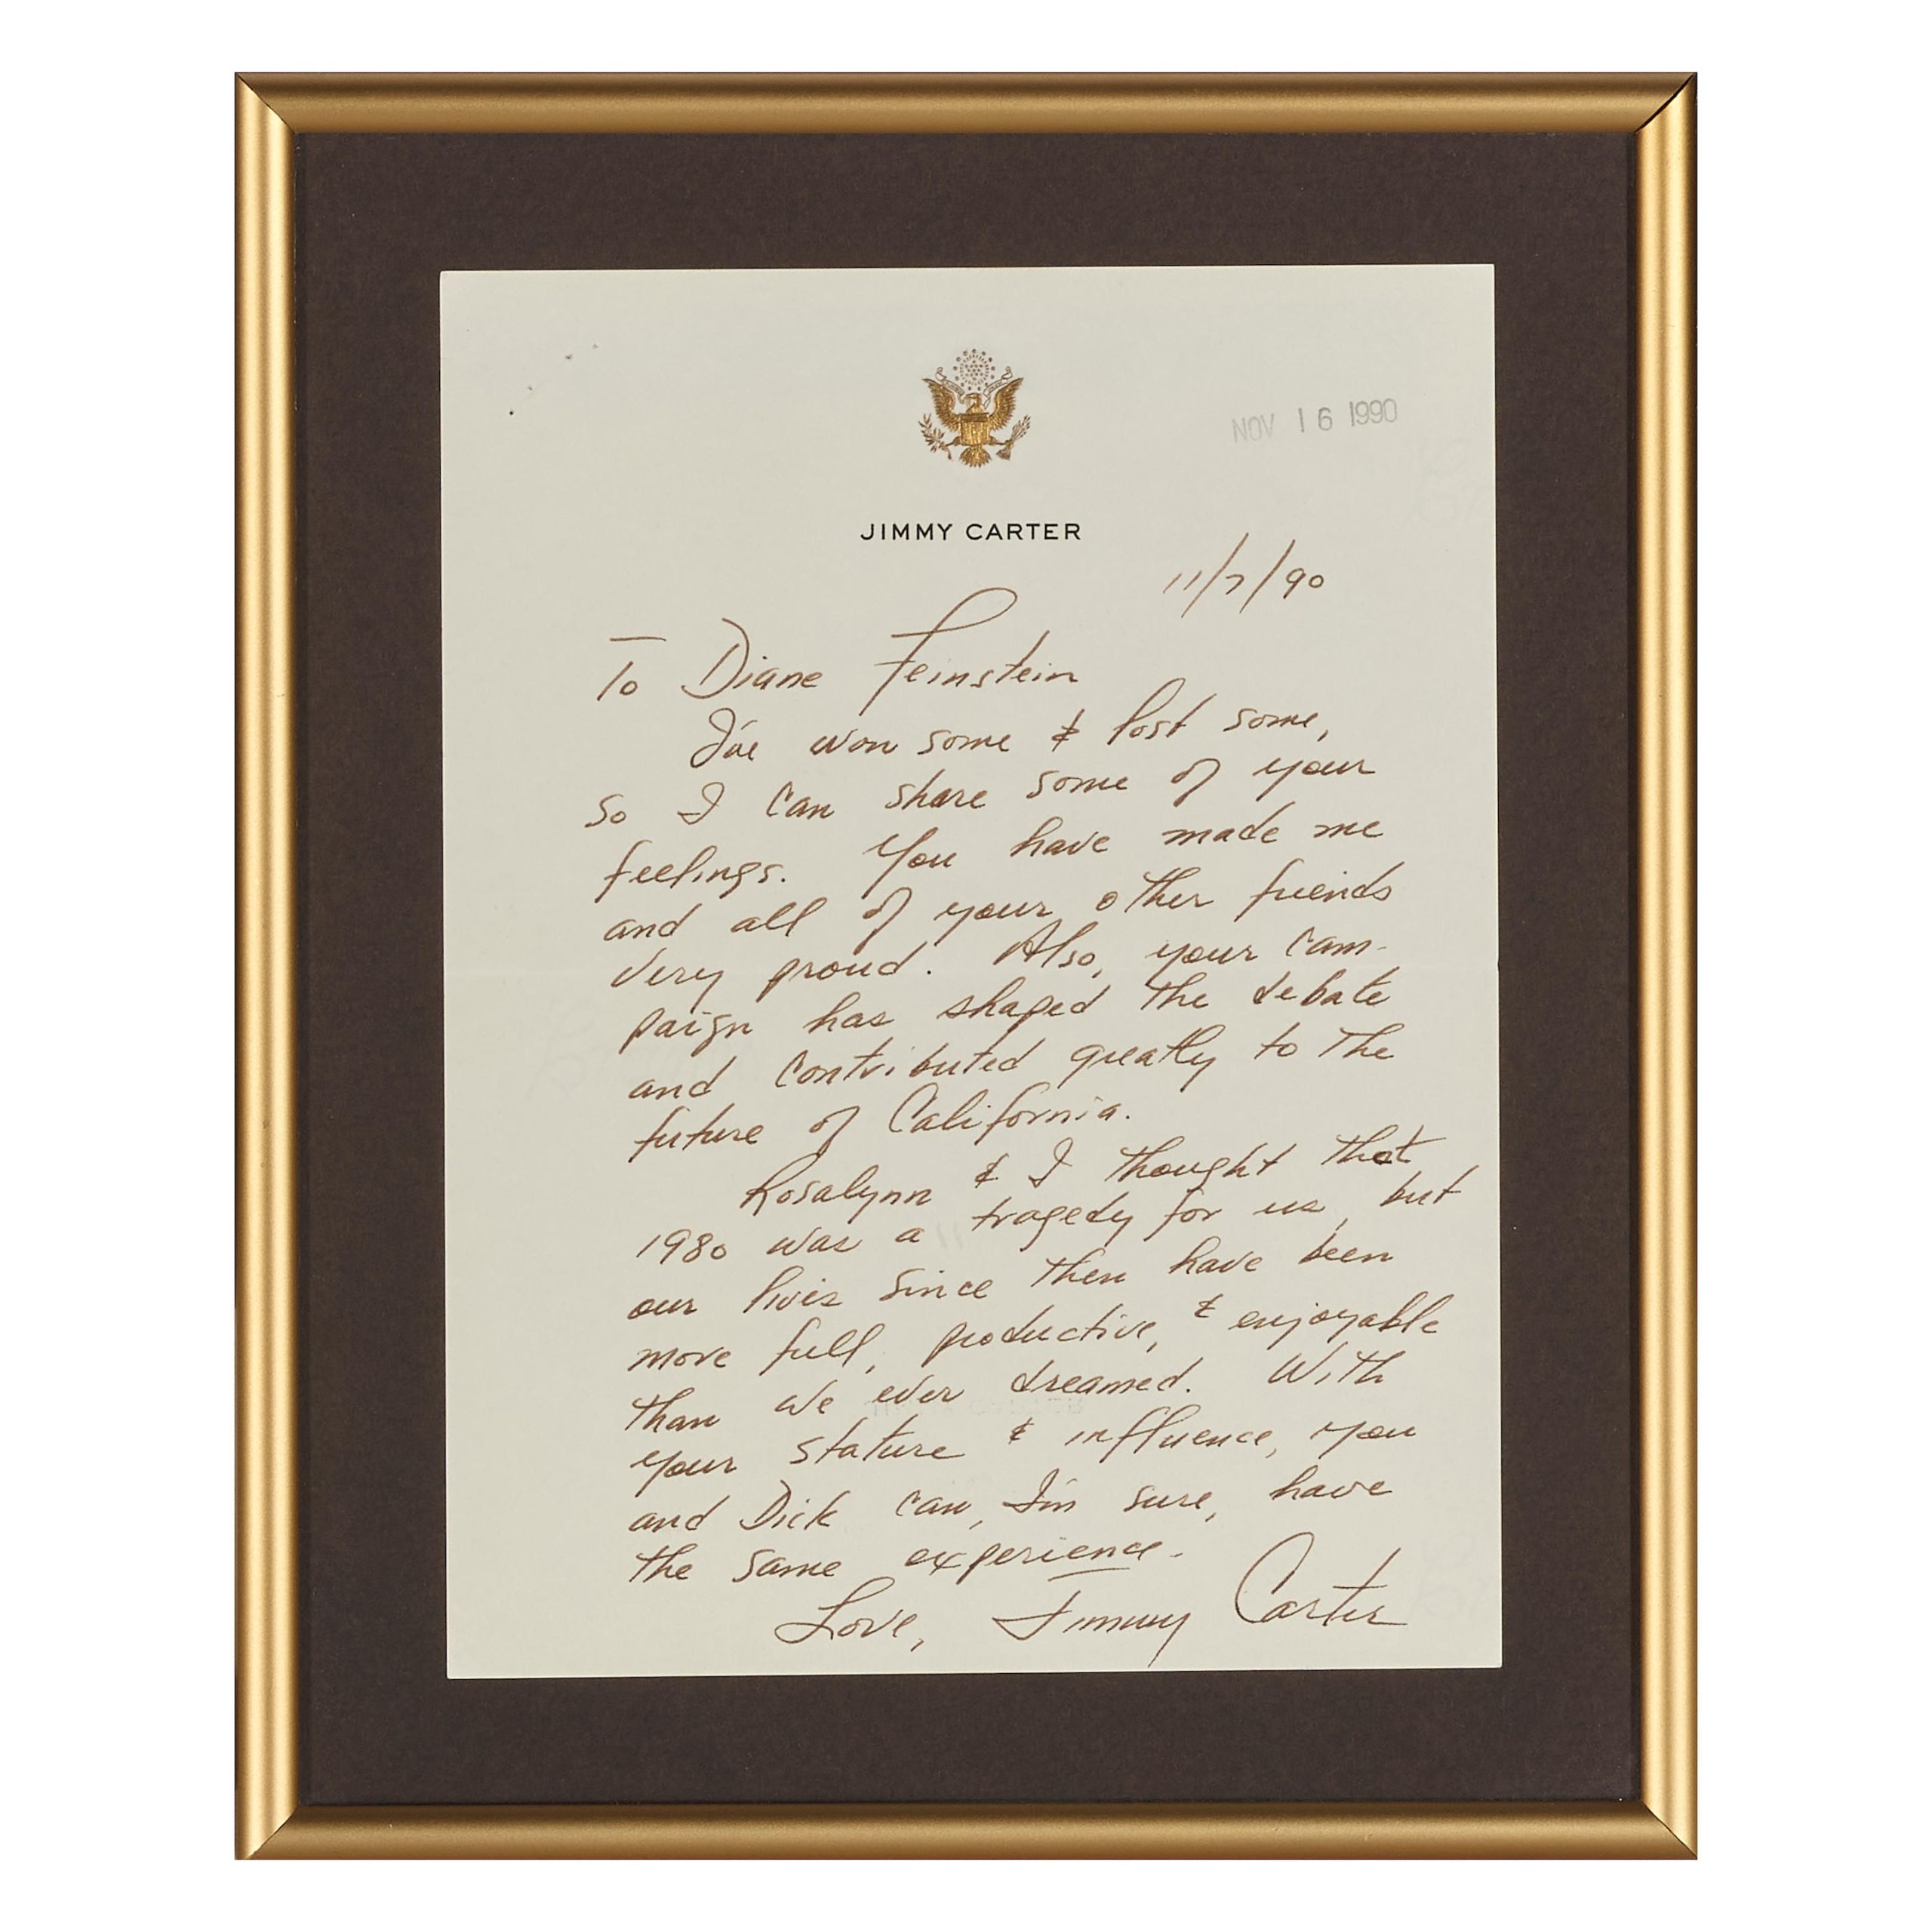 NOV 16 1990
JIMMY CARTER
11/7/90
To Diane Feinstein
I've won some & lost some,
so I can share some of your
feelings. You have made me
and all of your other friends
very proud. Also, your cam-
paign has shaped the debate
and contributed greatly to the
future of California.
Rosalynn & I thought that
1980 was a tragedy for us, but
our lives since then have been
more full, productive, & enjoyable
than we ever dreamed. With
your stature & influence, you
and Dick can, I'm sure, have
the same experience.
Love, Jimmy Carter